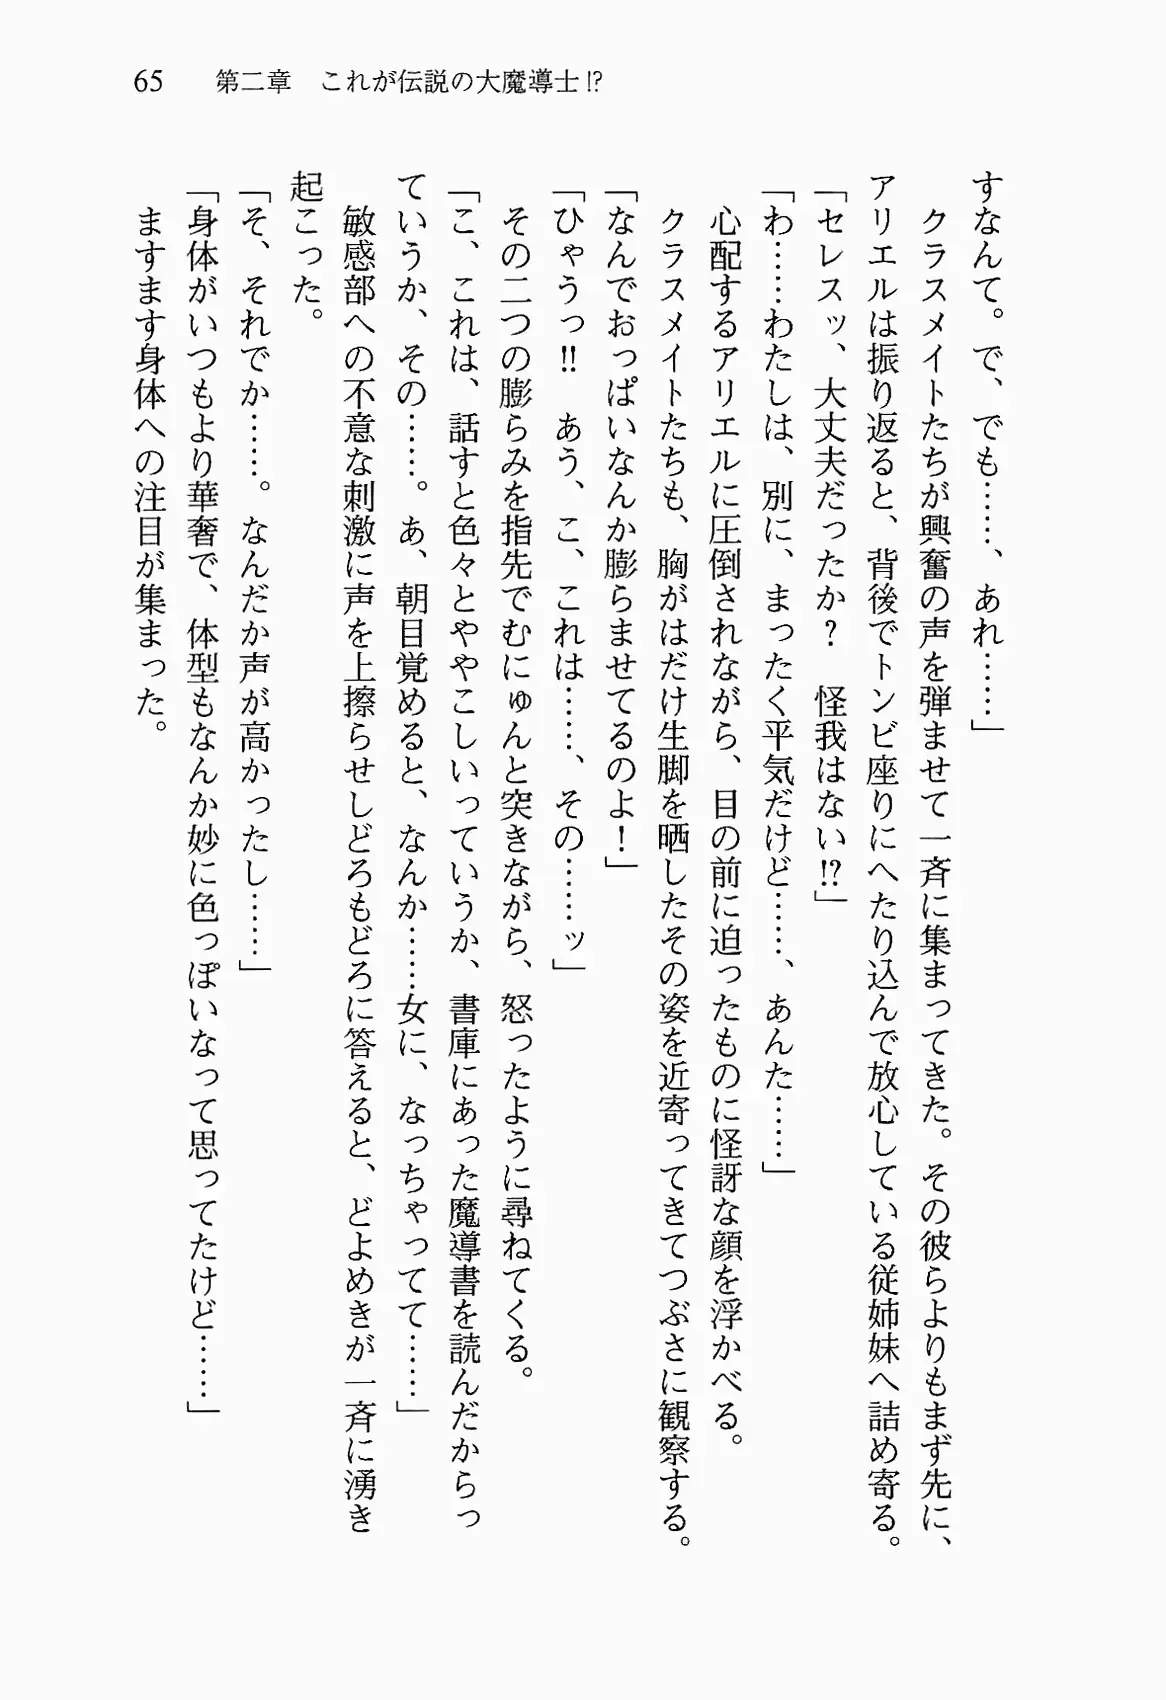 65　第二章　これが伝説の大魔導士!?
すなんて。で、でも……、あれ……」
　クラスメイトたちが興奮の声を弾ませて一斉に集まってきた。その彼らよりもまず先に、
アリエルは振り返ると、背後でトンビ座りにへたり込んで放心している従姉妹へ詰め寄る。
「セレスッ、大丈夫だったか？　怪我はない!?」
「わ……わたしは、別に、まったく平気だけど……、あんた……」
　心配するアリエルに圧倒されながら、目の前に迫ったものに怪訝な顔を浮かべる。
　クラスメイトたちも、胸がはだけ生脚を晒したその姿を近寄ってきてつぶさに観察する。
「なんでおっぱいなんか膨らませてるのよ！」
「ひゃうっ!!　あう、こ、これは……、その……ッ」
　その二つの膨らみを指先でむにゅんと突きながら、怒ったように尋ねてくる。
「こ、これは、話すと色々とややこしいっていうか、書庫にあった魔導書を読んだからっ
ていうか、その……。あ、朝目覚めると、なんか……女に、なっちゃってて……」
　敏感部への不意な刺激に声を上擦らせしどろもどろに答えると、どよめきが一斉に湧き
起こった。
「そ、それでか……。なんだか声が高かったし……」
「身体がいつもより華奢で、体型もなんか妙に色っぽいなって思ってたけど……」
　ますます身体への注目が集まった。